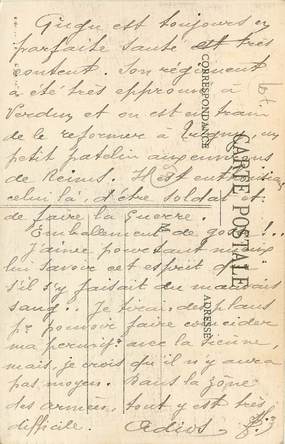 Gugu est toujours en
parfaite santé et très
content. Son régiment
a été très éprouvé à
Verdun et on est en train
de le reformer à un
petit patelin aux environs
de Reims. Il est
celui là, d'être soldat et
de faire la Guerre.
Emballement de gosse!..
J'aime pourtant mieux
lui savoir cet esprit que
s'il s'y faisait du mauvais
sang.. Je tirai des plans
pr pouvoir faire coincider
ma permissn avec la sienne,
mais je crois qu'il n'y aura
pas moyen. Dans la zône
des armées, tout y est très
difficile. Adios.
CARTE POSTALE
CORRESPONDANCE
ADRESSE